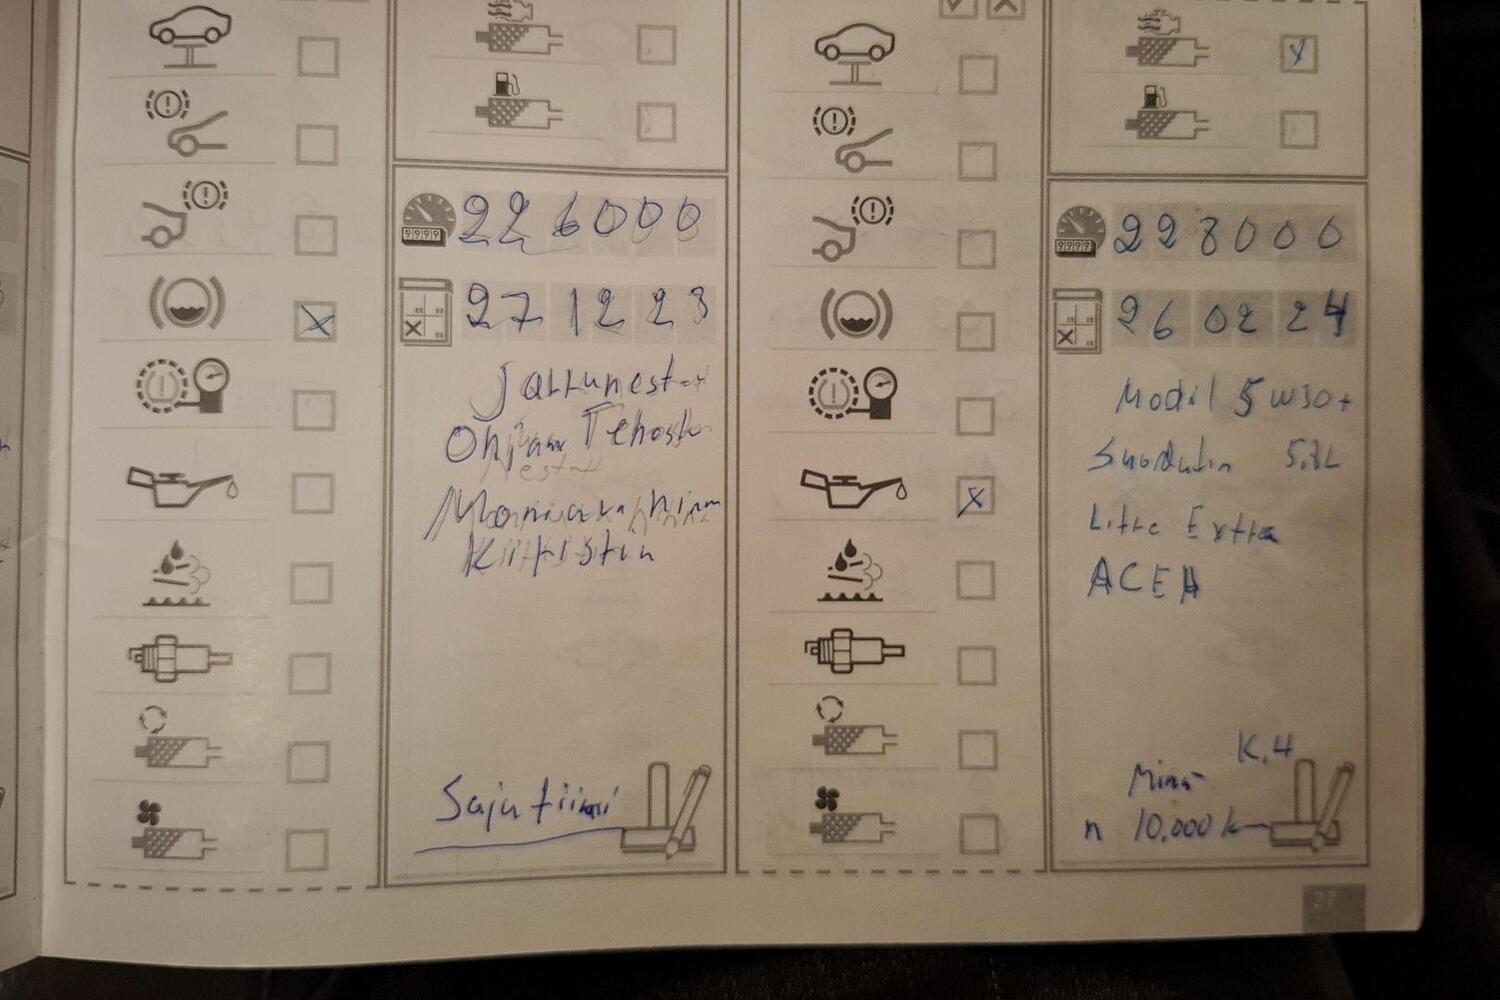 226000
27 12 23
Jarrunest-
Ohjaus Tehost
Nestet
Moniura hinn
Kiitistin
Sajutiimi
228000
26 02 24
Modil 5W30+
Suodatin 5,2L
Litre Extra
ACEA
K.H
Minä
n 10.000 km
37